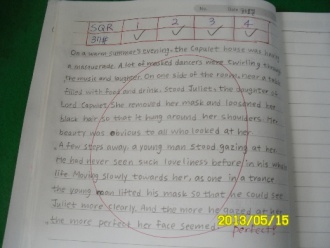 SQR 1 2 3 4
30#
On a warm summer's evening, the Capulet house was having
a masquerade. A lot of masked dancers were swirling
the music and laughter. On one side of the room, near a table
filled with food and drink, stood Juliet, the daughter of
Lord Capulet. She removed her mask and loosened her
black hair so that it hung around her shoulders. Her
beauty was obvious to all who looked at her.
A few steps away, a young man stood gazing at her.
He had never seen such loveliness before in his whole
life. Moving slowly towards her, as one in a trance
the young man lifted his mask so that he could see
Juliet more clearly. And the more he gazed at her
the more perfect her face seemed.
perfect!
2013/05/15